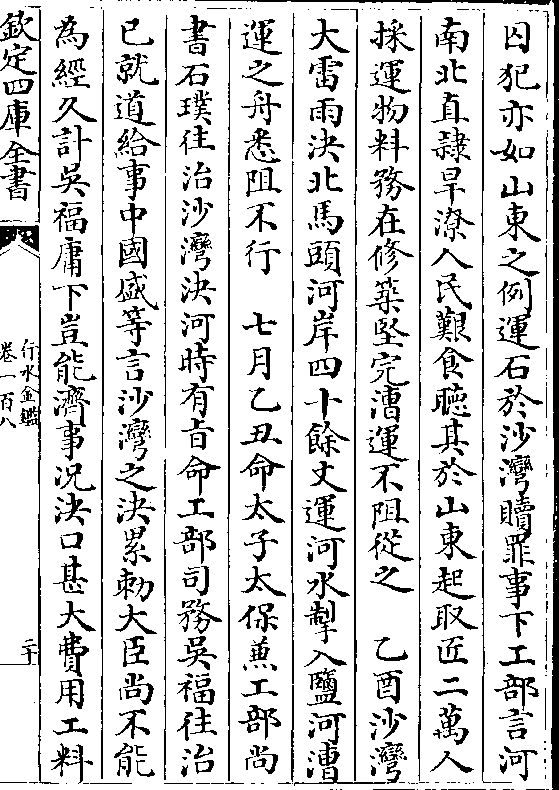 囚犯亦如山東之例運石於沙灣贖罪事下工部言河
南北直隸旱潦人民艱食聽其於山東起取匠二萬人
採運物料務在修築堅完漕運不阻從之　乙酉沙灣
大雷雨決北馬頭河岸四十餘丈運河水掣入鹽河漕
運之舟悉阻不行　七月乙丑命太子太保兼工部尚
書石璞往治沙灣決河時有旨命工部司務吳福往治
已就道給事中國盛等言沙灣之決累勅大臣尚不能
為經久計吳福庸下豈能濟事況決口甚大費用工料
欽定四庫全書
行水金鑑
卷一百八
二十